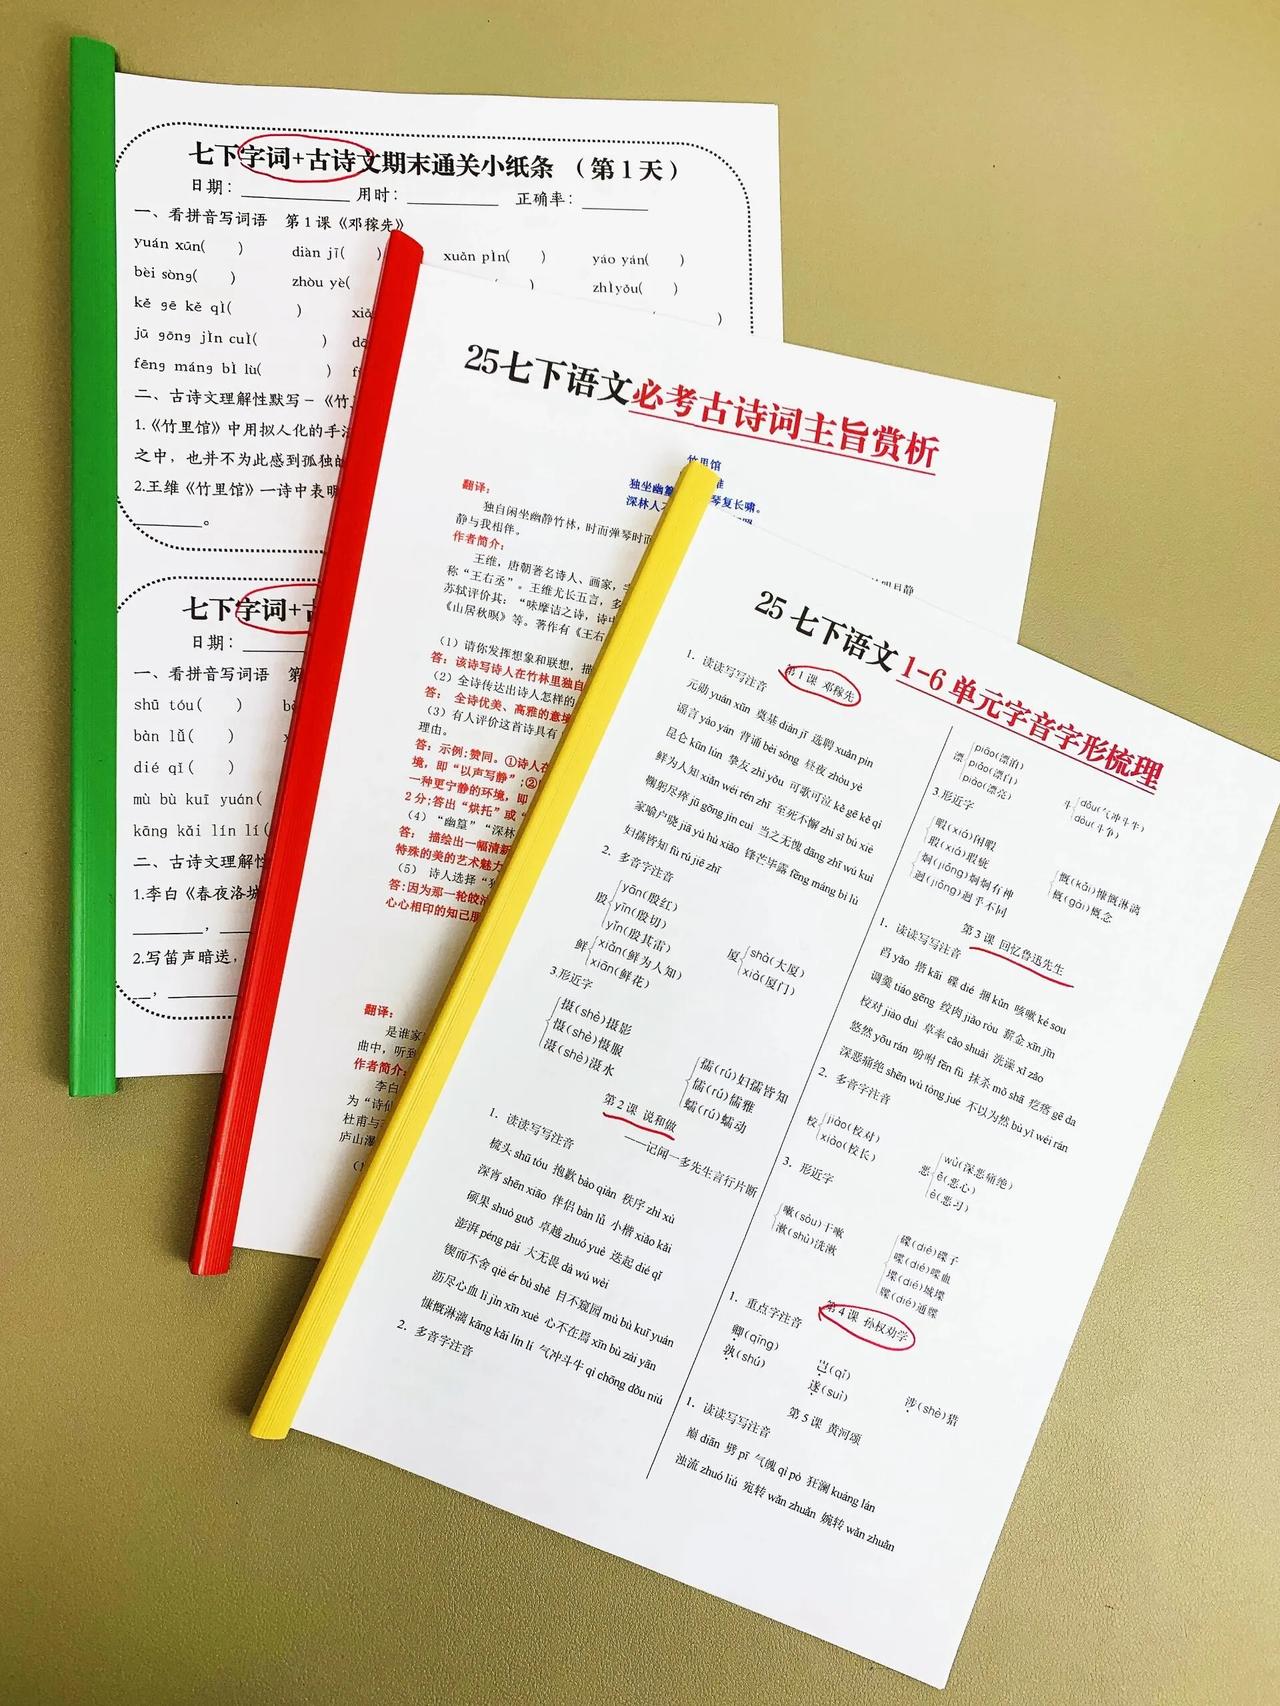 七下字词+古诗文期末通关小纸条 （第1天）
日期： 用时： 正确率：
一、看拼音写词语 第1课《邓稼先》
yuán xūn( ) diàn jī( ) xuān pìn( ) yáo yán( )
bèi sòng( ) zhòu yè( ) zhìyǒu( )
kě gē kě qì( )
jū gōng jìn cuì( )
fēng máng bì lù( )
二、古诗文理解性默写－《竹
1.《竹里馆》中用拟人化的手法
之中，也并不为此感到孤独的
2.王维《竹里馆》一诗中表明
。
七下字词+古
日期：
一、看拼音写词语 第
shū tóu( )
bàn lǚ( )
dié qǐ( )
mù bù kuī yuán(
kāng kǎi lín lí(
二、古诗文理解性
1.李白《春夜洛城
，
2.写笛声暗送，
，
25七下语文必考古诗词主旨赏析
竹里馆
独坐幽篁 琴复长啸。
深林人不
翻译：
独自闲坐幽静竹林，时而弹琴时而
静与我相伴。
作者简介：
王维，唐朝著名诗人、画家，字
称“王右丞”。王维尤长五言，多
苏轼评价其：“味摩诘之诗，诗中
《山居秋暝》等。著作有《王右
（1）请你发挥想象和联想，描
答：该诗写诗人在竹林里独自
（2）全诗传达出诗人怎样的
答： 全诗优美、高雅的意境
（3）有人评价这首诗具有
理由。
答：示例:赞同。①诗人在
境，即“以声写静”;②
一种更宁静的环境，即
2分:答出“烘托”或“
（4）“幽篁”“深林
答： 描绘出一幅清新
特殊的美的艺术魅力
（5） 诗人选择“
答:因为那一轮皎洁
心心相印的知己朋
翻译：
是谁家
曲中，听到
作者简介：
李白
为“诗仙
杜甫与
庐山瀑
25 七下语文 1-6 单元字音字形梳理
第1课 邓稼先
1. 读读写写注音
元勋 yuán xūn 奠基 diàn jī 选聘 xuān pìn
谣言 yáo yán 背诵 bèi sòng 昼夜 zhòu yè
昆仑 kūn lún 挚友 zhì yǒu 可歌可泣 kě gē kě qì
鲜为人知 xiǎn wéi rén zhī 至死不懈 zhì sǐ bú xiè
鞠躬尽瘁 jū gōng jìn cuì 当之无愧 dāng zhī wú kuì
家喻户晓 jiā yù hù xiǎo 锋芒毕露 fēng máng bì lù
妇孺皆知 fù rú jiē zhī
2. 多音字注音
殷 yān(殷红)
yīn(殷切)
yǐn(殷其雷)
鲜 xiǎn(鲜为人知)
xiān(鲜花)
厦 shà(大厦)
xià(厦门)
3.形近字
摄(shè)摄影
慑(shè)慑服
滠(shè)滠水
孺(rú)妇孺皆知
儒(rú)儒雅
蠕(rú)蠕动
第2课 说和做
——记闻一多先生言行片断
1. 读读写写注音
梳头 shū tóu 抱歉 bào qiàn 秩序 zhì xù
深宵 shēn xiāo 伴侣 bàn lǚ 小楷 xiǎo kǎi
硕果 shuò guǒ 卓越 zhuó yuè 迭起 dié qǐ
澎湃 péng pài 大无畏 dà wú wèi
锲而不舍 qiè ér bù shě 目不窥园 mù bù kuī yuán
沥尽心血 lì jìn xīn xuè 心不在焉 xīn bù zài yān
慷慨淋漓 kāng kǎi lín lí 气冲斗牛 qì chōng dǒu niú
2. 多音字注音
漂 piāo(漂泊)
piǎo(漂白)
piào(漂亮)
斗 dǒu(气冲斗牛)
dòu(斗争)
3.形近字
暇(xiá)闲暇
瑕(xiá)瑕疵
炯(jiǒng)炯炯有神
迥(jiǒng)迥乎不同
慨(kǎi)慷慨淋漓
概(gài)概念
第3课 回忆鲁迅先生
1. 读读写写注音
舀 yǎo 揩 kāi 碟 dié 捆 kǔn 咳嗽 ké sou
调羹 tiáo gēng 绞肉 jiǎo ròu 薪金 xīn jīn
校对 jiào duì 草率 cǎo shuài 洗澡 xǐ zǎo
悠然 yōu rán 吩咐 fēn fù 抹杀 mǒ shā 疙瘩 gē da
深恶痛绝 shēn wù tòng jué 不以为然 bù yǐ wéi rán
2. 多音字注音
校 jiào(校对)
xiào(校长)
恶 wù(深恶痛绝)
ě(恶心)
è(恶习)
3. 形近字
嗽(sòu)干嗽
漱(shù)洗漱
碟(dié)碟子
喋(dié)喋血
堞(dié)城堞
牒(dié)通牒
第4课 孙权劝学
1. 重点字注音
卿(qīng)
孰(shú)
岂(qǐ)
遂(suì)
涉(shè)猎
第5课 黄河颂
1. 读读写写注音
巅 diān 劈 pī 气魄 qì pò 狂澜 kuáng lán
浊流 zhuó liú 宛转 wǎn zhuǎn 婉转 wǎn zhuǎn